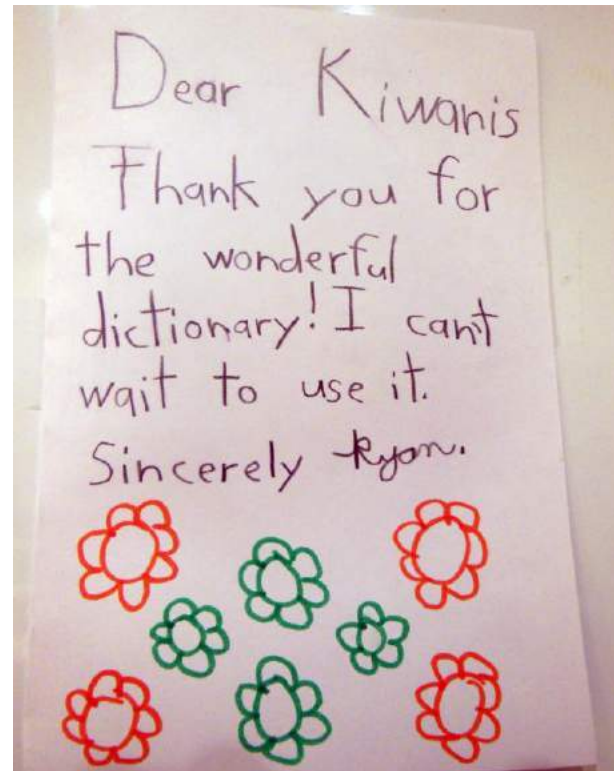 Dear Kiwanis
Thank you for
the wonderful
dictionary! I can't
wait to use it.
Sincerely Ryan.